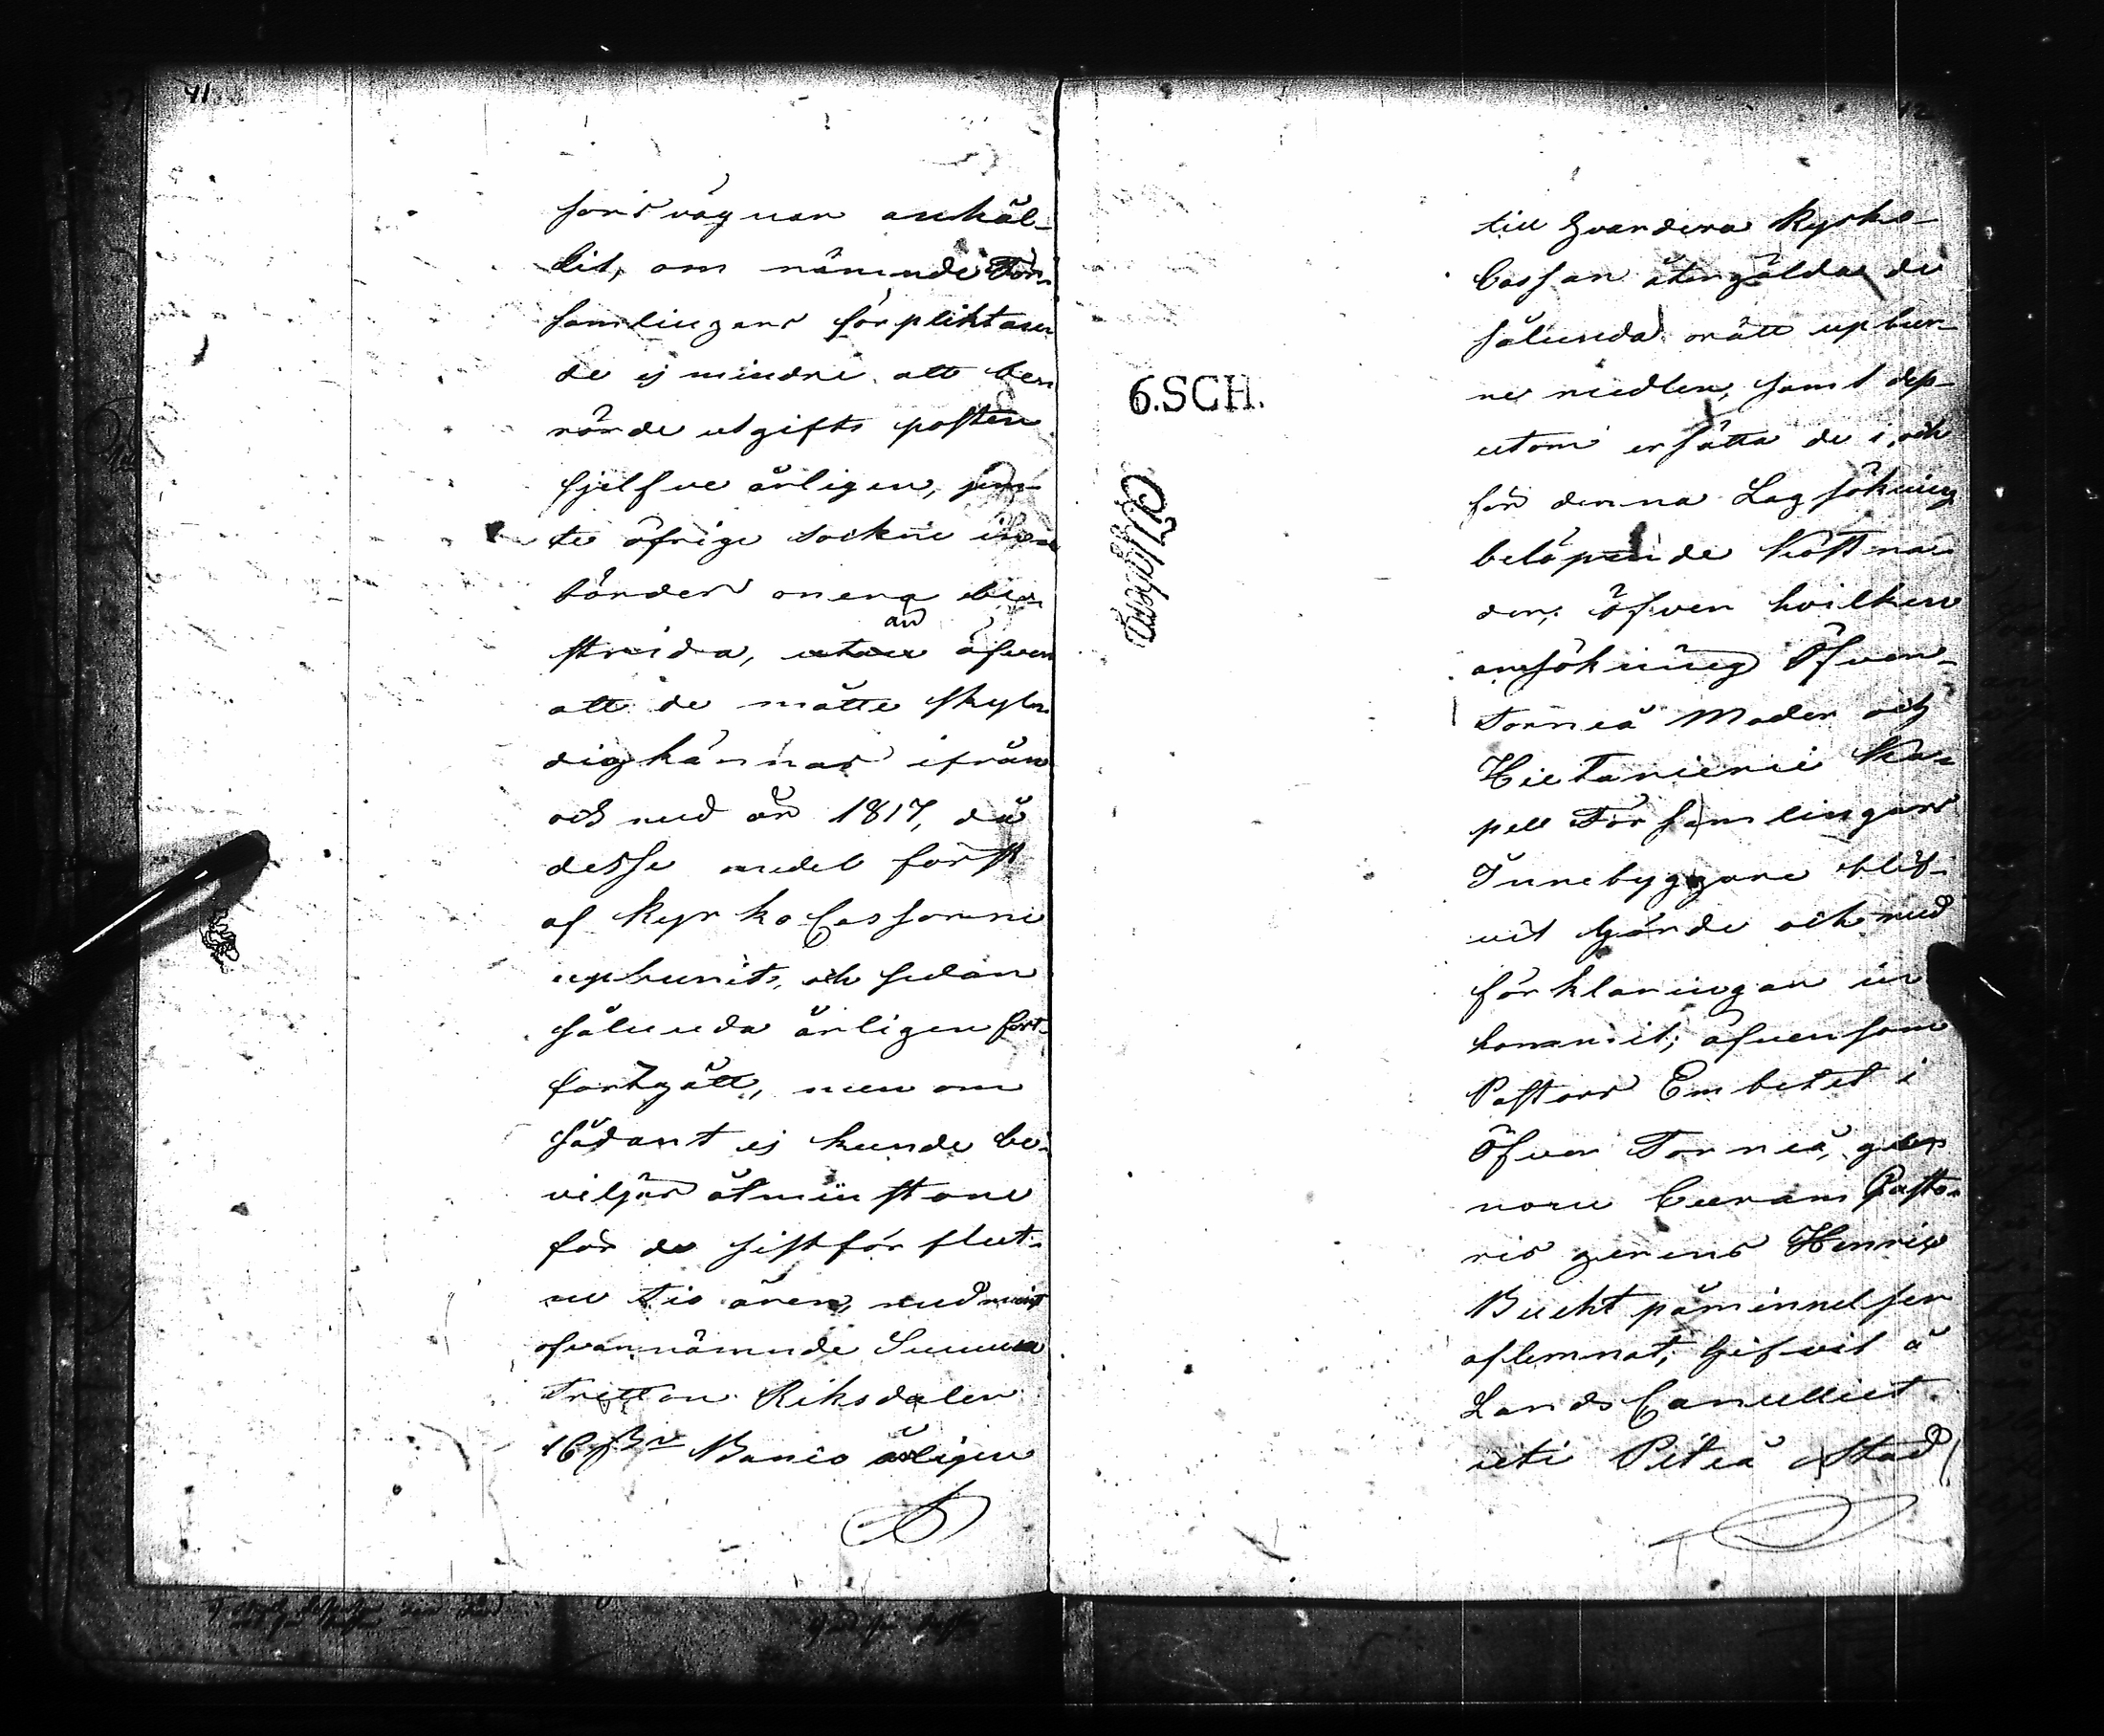 41
sons vägnar anhål-
lit, om nämnde För-
samlingars förpliktan-
de ej mindre att ber-
rörde utgifts posten
sjelfve årligen, jem-
te öfrige sockne inne-
bönder onera be-
strida, än äfven
att de måtte skyl-
dig kännas ifrån
och med år 1817, då
desse medel först
af kyrko Cassorne
upburits, och sedan
sålunda årligen fort-
fortgått, men om
sådant ej kunde be-
viljas åtminstone
för de sistförflut-
ne tio åren, med
ofvannämnde Summa
Tretton Riksdaler
16 Banco årligen
12
till hvardera Kyrko-
Cassan återgälda de
sålunda orätt upbur-
ne medlen, samt dess-
utom ersätta de i och
för denna Lagsökning
belöpande Kostna-
der; Öfver hvilken
ansökning Öfver-
Torneå Moder och
Hietaniemi Ka-
pell Församlingars
Innebyggare blif-
vit hörde och med
förklaringar in-
kommit; äfvensom
Pastors Embetet i
Öfver Torneå, ge-
nom Curam Pasto-
ris gerens Henric
Bucht påminnelser
aflemnat; Gifvit å
Lands Cancelliet
uti Piteå Stad
6.SCH.